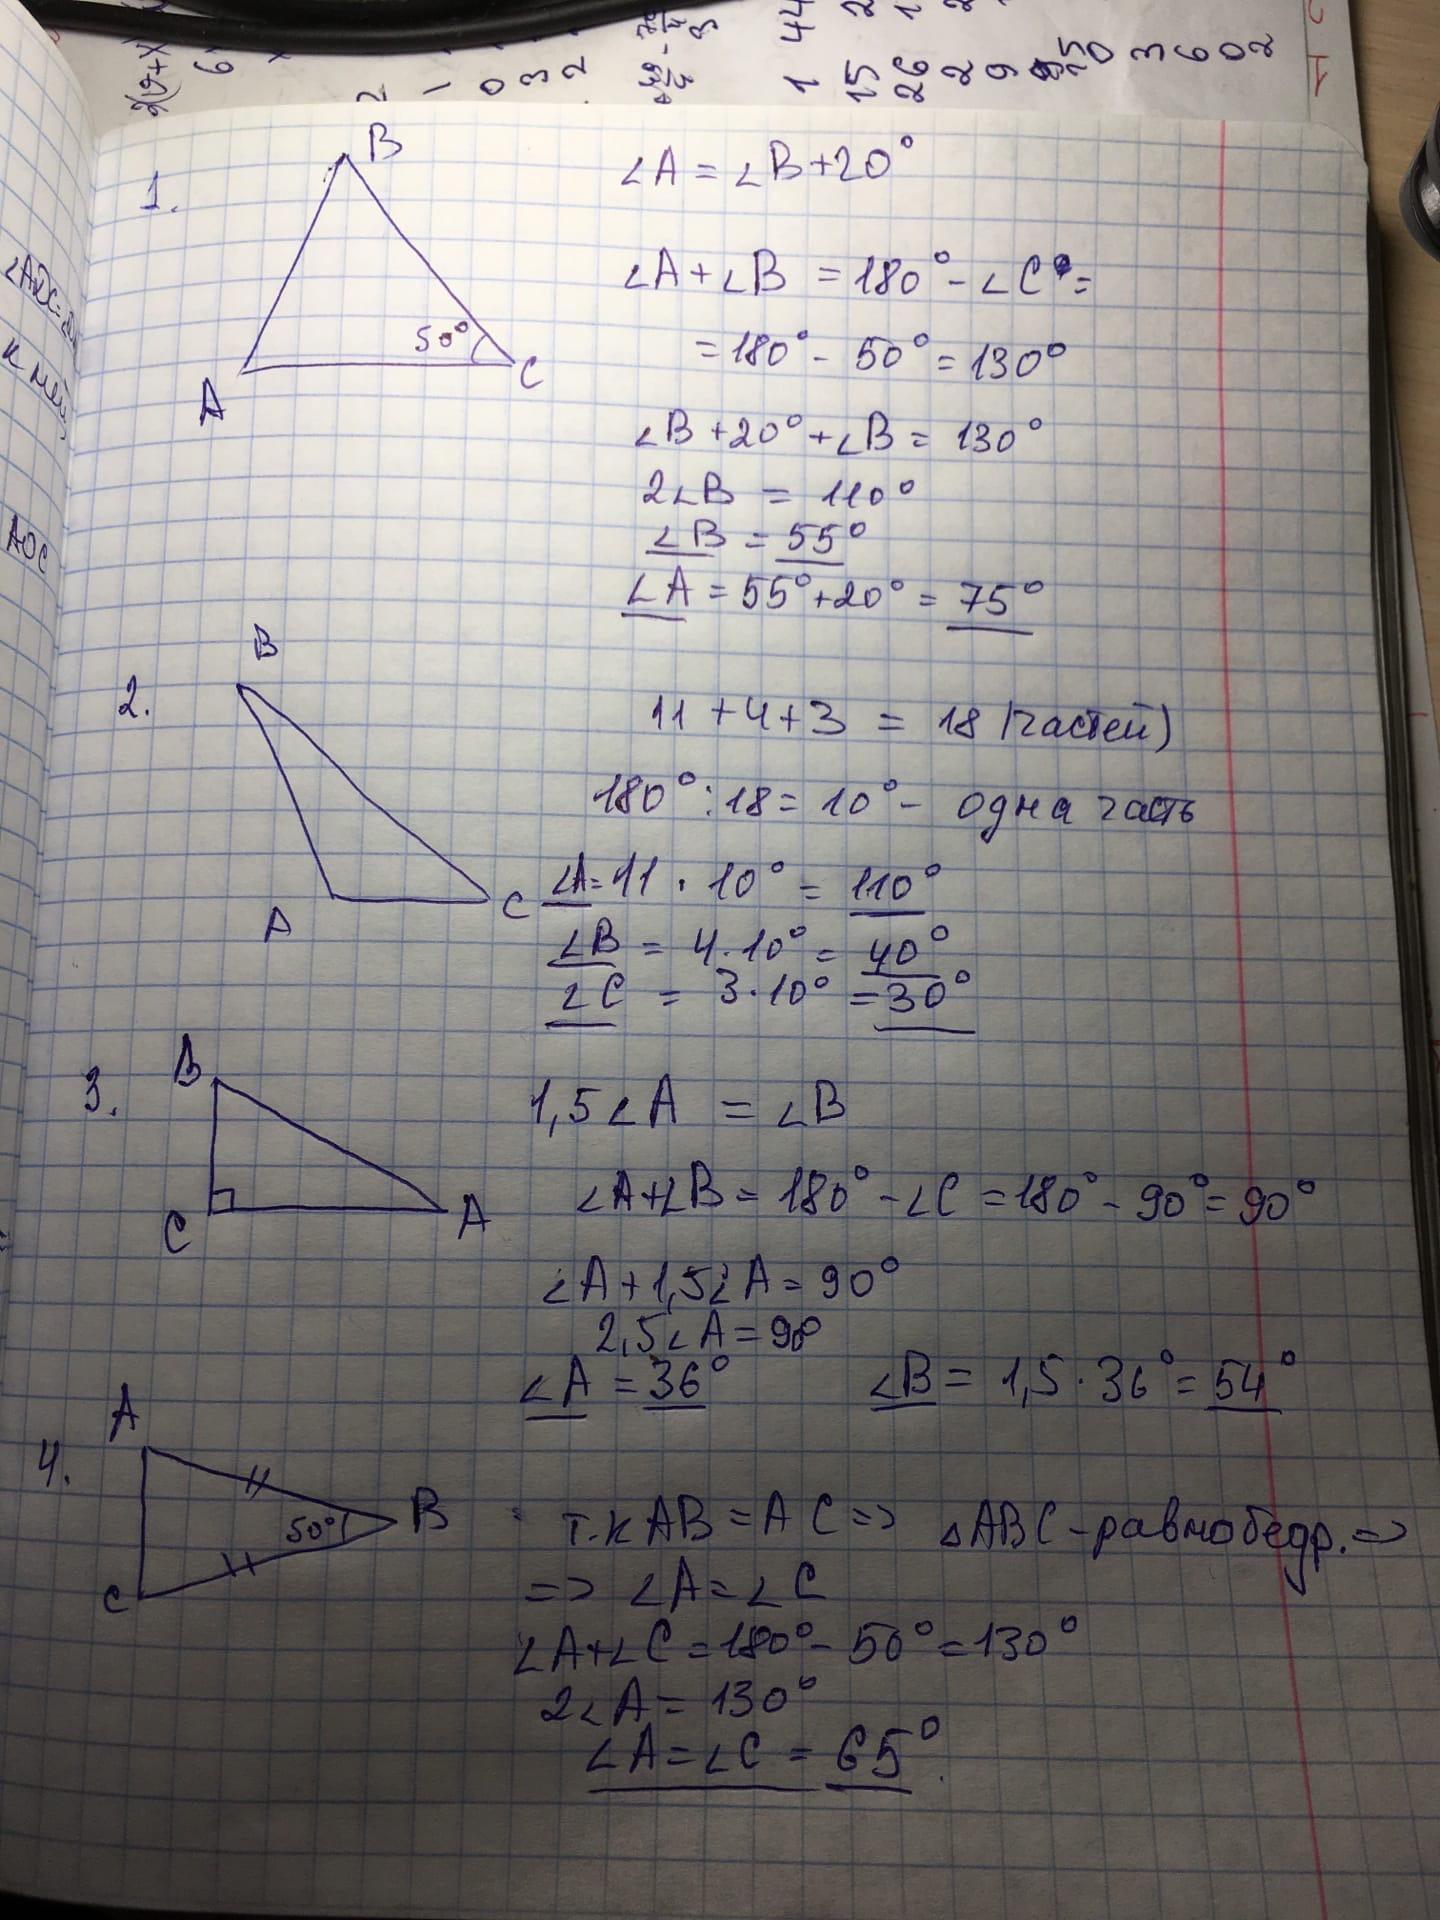 1.
B
50°
A
C
∠A = ∠B+20°
∠A+∠B = 180°-∠C =
= 180° - 50° = 130°
∠B+20°+∠B = 130°
2∠B = 110°
∠B = 55°
∠A = 55°+20° = 75°
2.
B
A
C
11 + 4 + 3 = 18 (частей)
180° : 18 = 10° - одна часть
∠A = 11 · 10° = 110°
∠B = 4 · 10° = 40°
∠C = 3 · 10° = 30°
3.
B
C
A
1,5∠A = ∠B
∠A+∠B = 180° - ∠C = 180° - 90° = 90°
∠A + 1,5∠A = 90°
2,5∠A = 90
∠A = 36° ∠B = 1,5 · 36° = 54°
4.
A
50°
B
C
т.к AB = AC => △ABC - равнобедр. =>
=> ∠A = ∠C
∠A+∠C = 180° - 50° = 130°
2∠A = 130°
∠A = ∠C = 65°
к ней
AOC
1 44
15 2
26 1
2 2
9
0
3
6
0
2